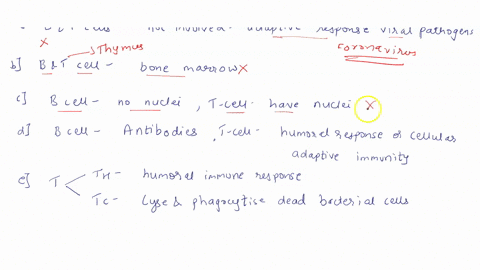 B & T cells - not involved - adaptive response viral pathogens
X
Thymus
coronavirus
b] B & T cell - bone marrow X
c] B cell - no nuclei , T-cell - have nuclei X
d] B cell - Antibodies , T-cell - humoral response or cellular
adaptive immunity
e] T TH - humoral immune response
Tc - Lyse & phagocytise dead bacterial cells